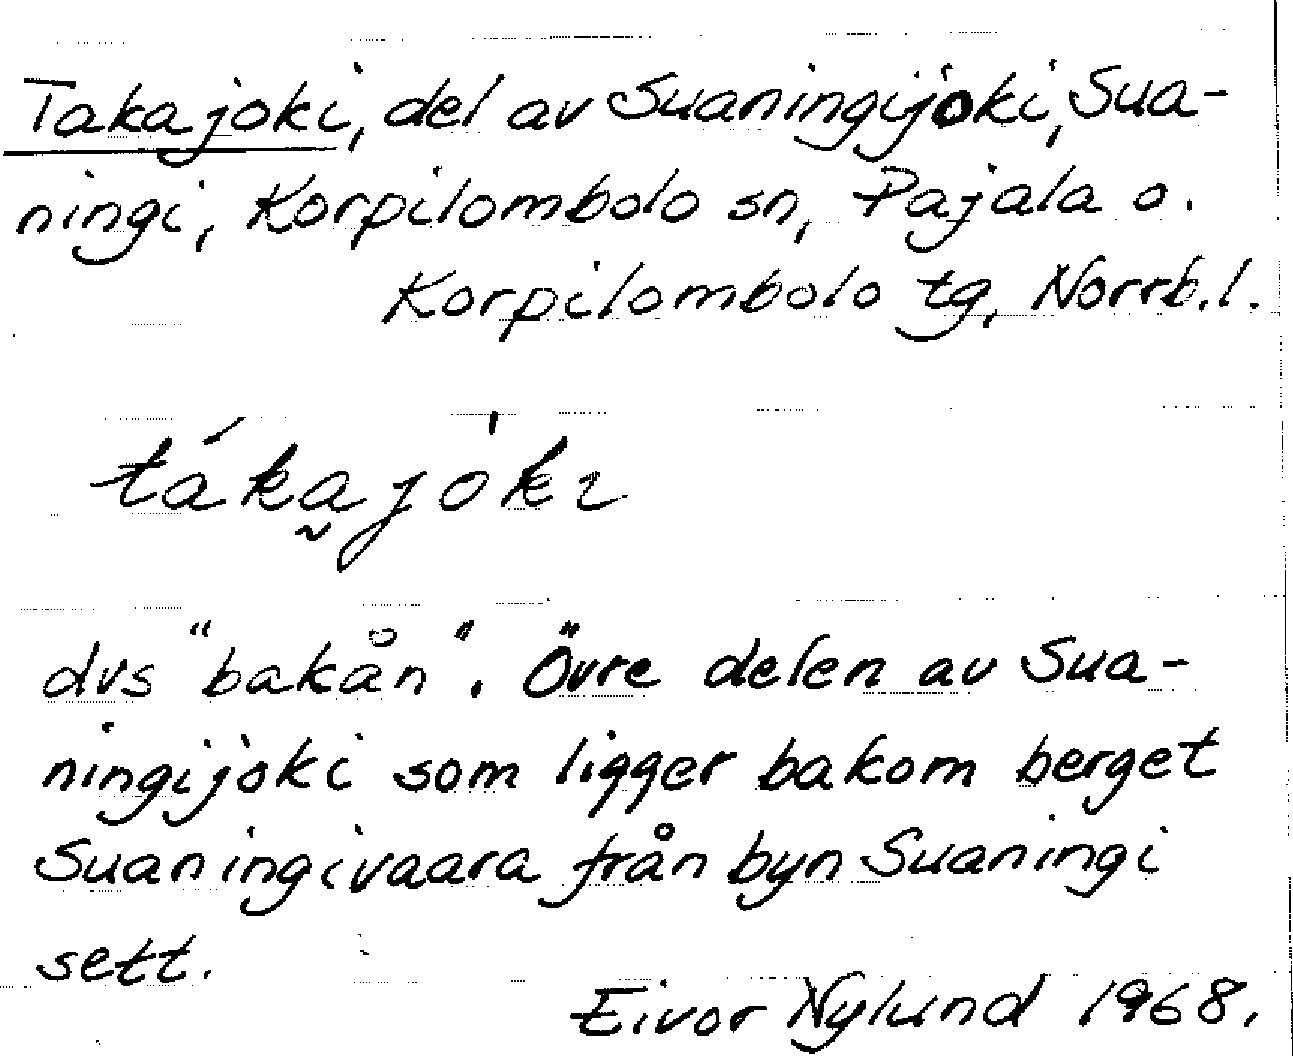 Takajoki, del av Suaningijoki, Sua-
ningi, Korpilombolo sn, Pajala o.
Korpilombolo tg, Norrb.l.
táka̰jòkı
dvs "bakån". Övre delen av Sua-
ningijoki som ligger bakom berget
Suaningivaara från byn Suaningi
sett.
Eivor Nylund 1968.